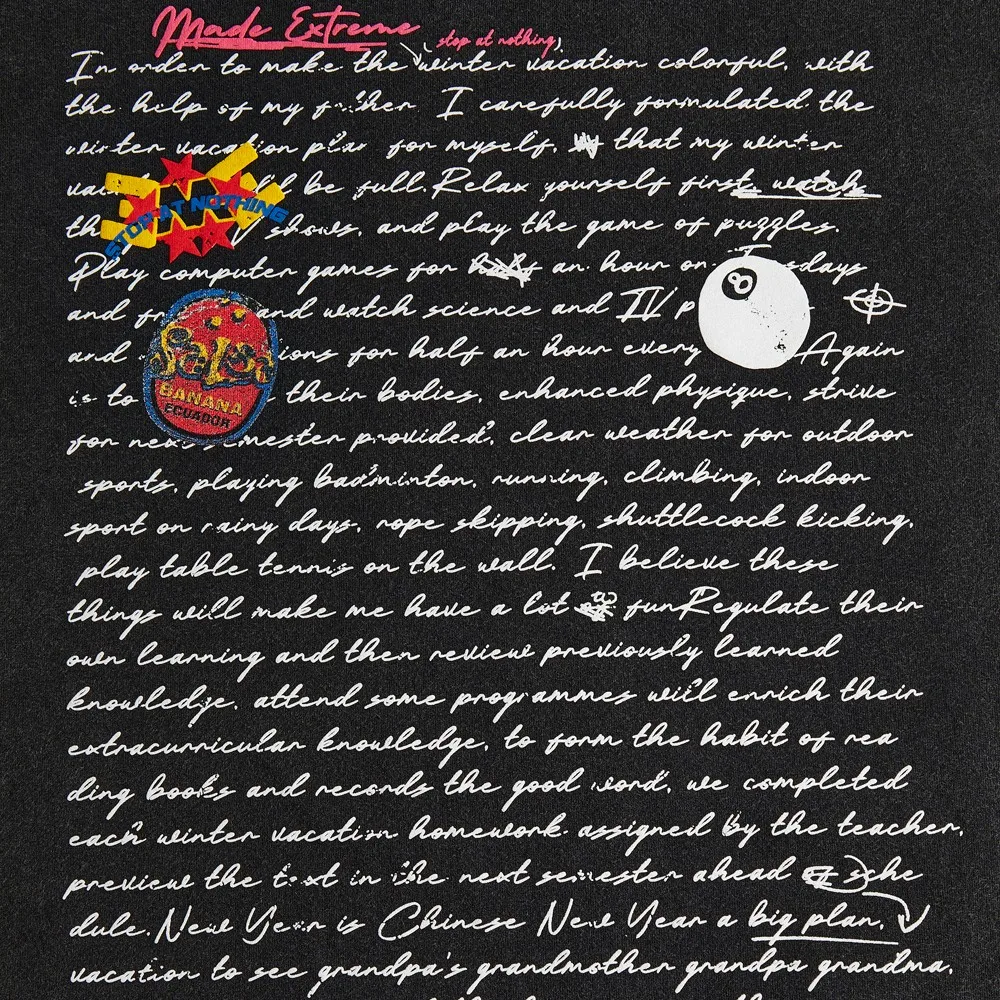 Made Extreme
stop at nothing,
In order to make the winter vacation colorful, with
the help of my father I carefully formulated the
winter vacation plan for myself, that my winter
be full. Relax yourself first, watch
shows, and play the game of puzzles.
STOP AT NOTHING
Play computer games for half an hour on
and watch science and IV
8
and for half an hour every Again
is to their bodies, enhanced physique, strive
BANANA
ECUADOR
for next semester provided, clear weather for outdoor
sports, playing badminton, running, climbing, indoor
sport on rainy days, rope skipping, shuttlecock kicking,
play table tennis on the wall. I believe these
things will make me have a lot fun Regulate their
own learning and then review previously learned
knowledge, attend some programmes will enrich their
extracurricular knowledge, to form the habit of rea
ding books and records the good word, we completed
each winter vacation homework assigned by the teacher,
preview the text in the next semester ahead sche
dule. New Year is Chinese New Year a big plan,
vacation to see grandpa's grandmother grandpa grandma,